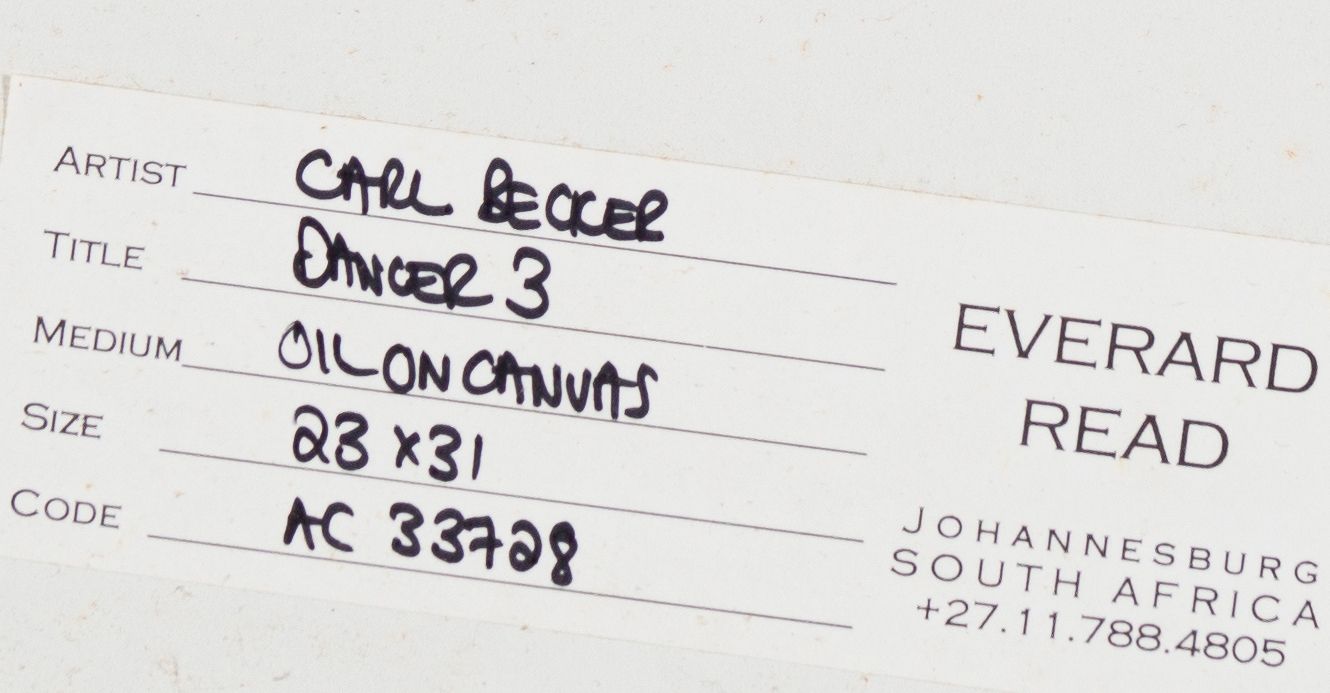 ARTIST CARL BECKER
TITLE DANCER 3
MEDIUM OIL ON CANVAS
SIZE 23 x 31
CODE AC 33728
EVERARD
READ
JOHANNESBURG
SOUTH AFRICA
+27.11.788.4805